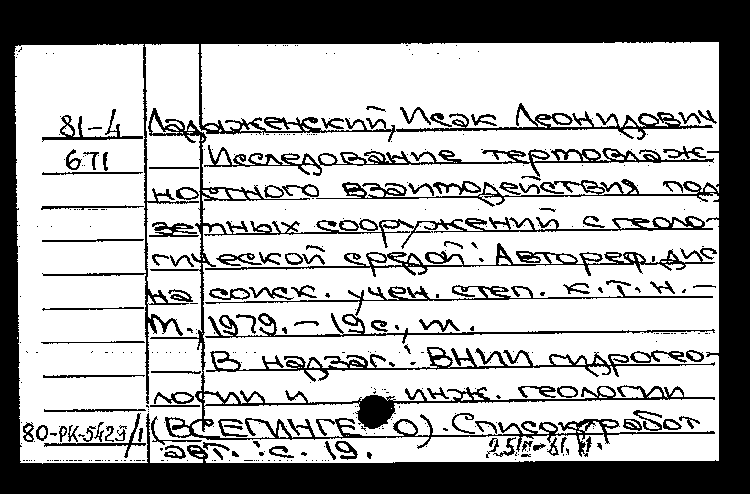 81-4 Ладыженский, Исак Леонидович
671 Исследование термовлаж-
ностного взаимодействия под
земных сооружений с геоло-
гической средой: Автореф. дис
на соиск. учен. степ. к.т.н.-
М., 1979.- 19 с., ил.
В надзаг.: ВНИИ гидрогео-
логии и инж. геологии
(ВСЕГИНГЕО). Список работ
80-РК-5429/1 авт.: с. 19.